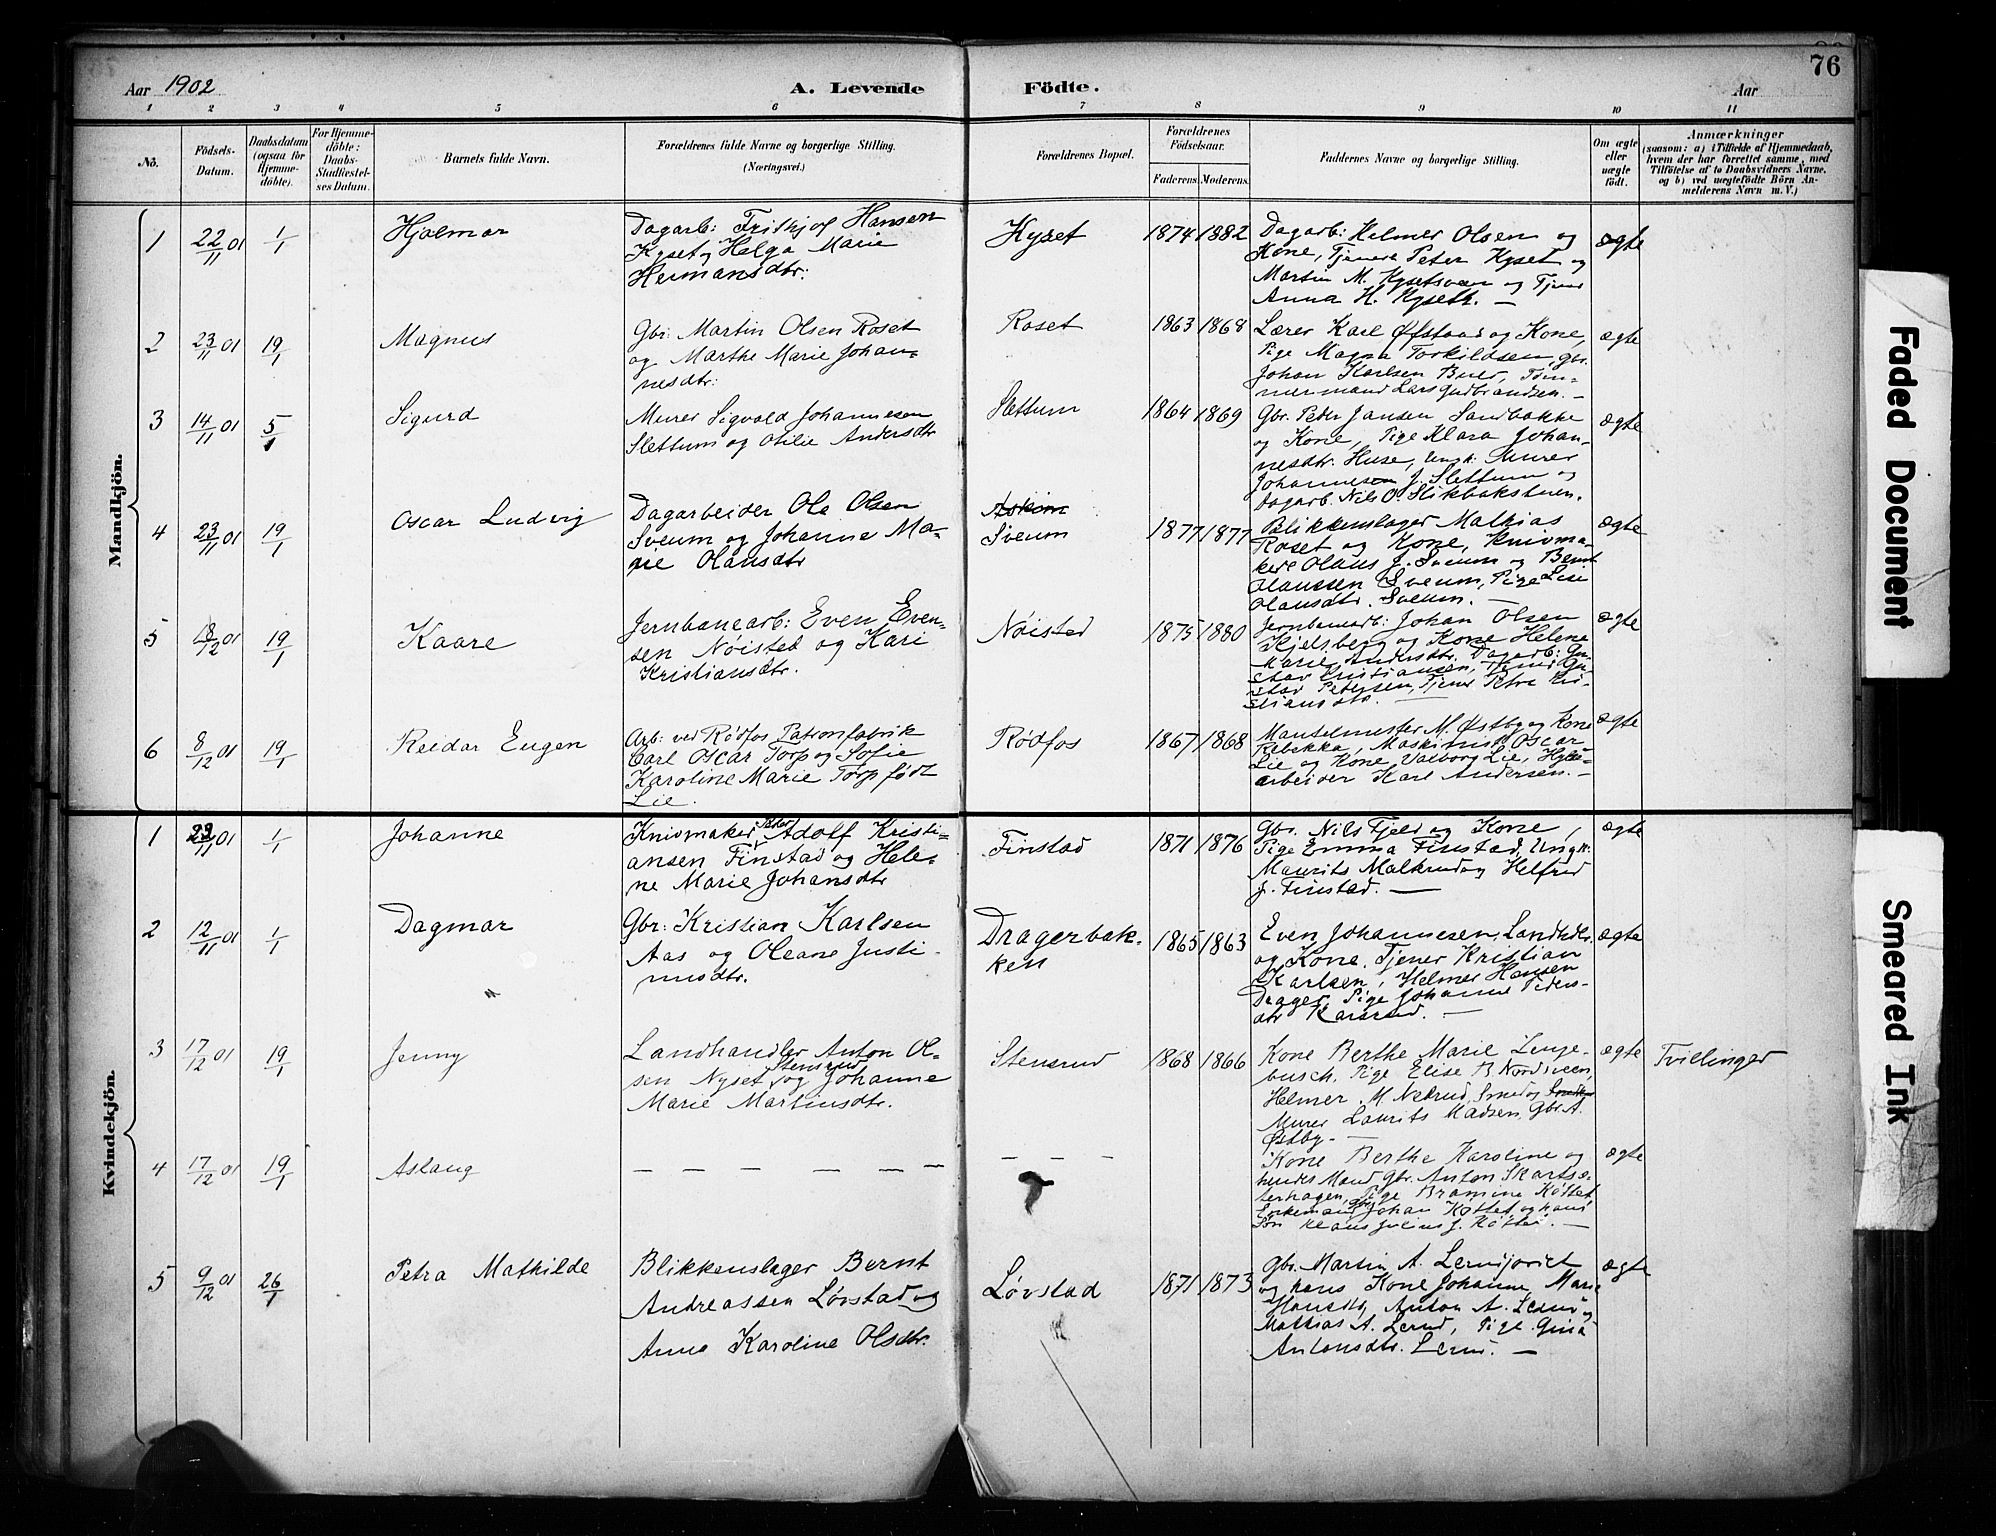 76
Aar 1902
A. Levende
Födte.
Aar
1 2 3 4 5 6 7 8 9 10 11
No.
Födsels-
Datum.
Daabsdatum
(ogsaa for
Hjemme-
döbte).
For Hjemme-
döbte:
Daabs-
Stadfæstel-
ses Datum.
Barnets fulde Navn.
Forældrenes fulde Navne og borgerlige Stilling.
(Næringsvei.)
Forældrenes Bopæl.
Forældrenes
Födselsaar.
Faderens.
Moderens.
Faddernes Navne og borgerlige Stilling.
Om ægte
eller
uægte
födt.
Anmærkninger
(saasom: a) i Tilfælde af Hjemmedaab,
hvem der har forrettet samme, med
Tilföielse af to Daabsvidners Navne,
og b) ved uægtefödte Börn An-
melderens Navn m. V.)
Mandkjön.
1 22/11 01 1/1 Hjalmar
Dagarb: Frithjof Hansen
Kyset og Helga Marie
Hermansdtr:
Kyset 1874 1882
Dagarb: Helmer Olsen og
Kone, Tjener Peter Kyset og
Martin M. Kysetsveen og Tjener
Anna H. Kyseth. —
ægte
2 23/11 01 19/1 Magnus
Gbr: Martin Olsen Roset
og Marthe Marie Johan-
nesdtr:
Roset 1863 1868
Lærer Karl Øfstaas og Kone,
Pige Magna Torkildsen, gbr.
Johan Karlsen Buer, Töm-
mermand Lars Gudbrandsen. —
ægte
3 14/11 01 5/1 Sigurd
Murer Sigvald Johannesen
Slettum og Otilie Andersdtr
Slettum 1864 1869
Gbr. Peder Jansen Sandbakke
og Kone, Pige Klara Johan-
nesdtr. Huse, Ungk: Murer
Johannesen J. Slettum og
Dagarb. Nils O. Slikbakstuen.
ægte
4 23/11 01 19/1 Oscar Ludvig
Dagarbeider Ole Olsen
Sveum og Johanne Ma-
rie Olausdtr
Askim
Sveum 1877 1877
Blikkenslager Mathias
Roset og Kone, Knivma-
kere Olaus J. Sveum og Bernt
Olaussen Sveum, Pige Lise
Olausdtr. Sveum. —
ægte
5 18/12 01 19/1 Kaare
Jernbanearb: Even Even-
sen Nøisted og Kari
Kristiansdtr.
Nøisted 1875 1880
Jernbanearb: Johan Olsen
Kjelsberg og Kone Helene
Marie Andersdtr. Dagarb: Gu-
stav Kristiansen, Tjener Gu-
stav Petersen, Tjener Petra Kri-
stiansdtr. —
ægte
6 8/12 01 19/1 Reidar Eugen
Arb: ved Rødfos Patronfabrik
Carl Oscar Torp og Sofie
Karoline Marie Torp født
Lie.
Rødfos 1867 1868
M. Østby og Kone
Rebekka, Oscar
Lie og Kone Valborg Lie,
arbeider Karl Andersen. —
ægte
Kvindekjön.
1 23/11 01 1/1 Johanne
Knivmaker Peder Adolf Kristi-
ansen Finstad og Hele-
ne Marie Johansdtr
Finstad 1871 1876
Gbr. Nils Fjeld og Kone,
Pige Emma Finstad, Ungk:
Maurits Malkrud og Helfred
J. Finstad. —
ægte
2 12/11 01 1/1 Dagmar
Gbr: Kristian Karlsen
Aas og Oleane Justi-
nusdtr.
Dragerbak-
ken
1865 1863
Even Johannesen, Landhdlr.
og Kone. Tjener Kristian
Karlsen, Helmer Hansen
Drager, Pige Johanne Peders-
dtr Karsrud. —
ægte
3 17/12 01 19/1 Jenny
Landhandler Anton Ol-
sen Nyset Stensrud og Johanne
Marie Martinsdtr.
Stensrud 1868 1866
Kone Berthe Marie Lenge-
busch. Pige Elise B Nordsveen,
Helmer M Netrud, Smed og
Murer Laurits Madsen, Gbr A.
Østby. —
ægte Tvillinger
4 17/12 01 19/1 Aslaug
— — — — — —
— — —
Kone Berthe Karoline og
hendes Mand Gbr. Anton Skartsæ-
terhagen, Pige Bramine Køtset,
Johan Køttet og hans
Søn Klaus Julius J. Køttet. —
ægte
5 9/12 01 26/1 Petra Mathilde
Blikkenslager Bernt
Andreassen Løvstad og
Anne Karoline Olsdtr.
Løvstad 1871 1873
Gbr. Martin A.
og hans Kone Johanne Marie
Anton A.
Mathias A. Lerud, Pige Gina
Antonsdtr. Lerud. —
ægte
Faded Document
Smeared Ink